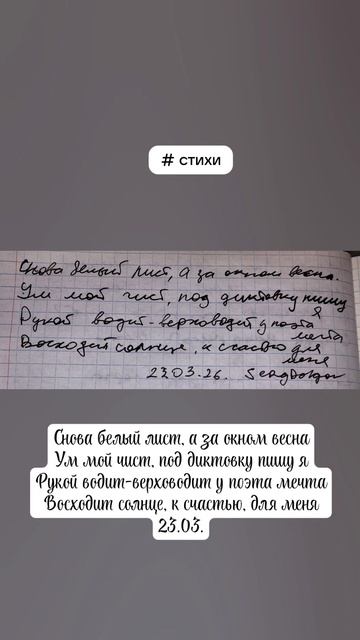 # стихи
Снова белый лист, а за окном весна.
Ум мой чист, под диктовку пишу
я
Рукой водит-верховодит у поэта
мечта
Восходит солнце, к счастью для
меня
23.03.26.
Снова белый лист, а за окном весна
Ум мой чист, под диктовку пишу я
Рукой водит-верховодит у поэта мечта
Восходит солнце, к счастью, для меня
23.03.